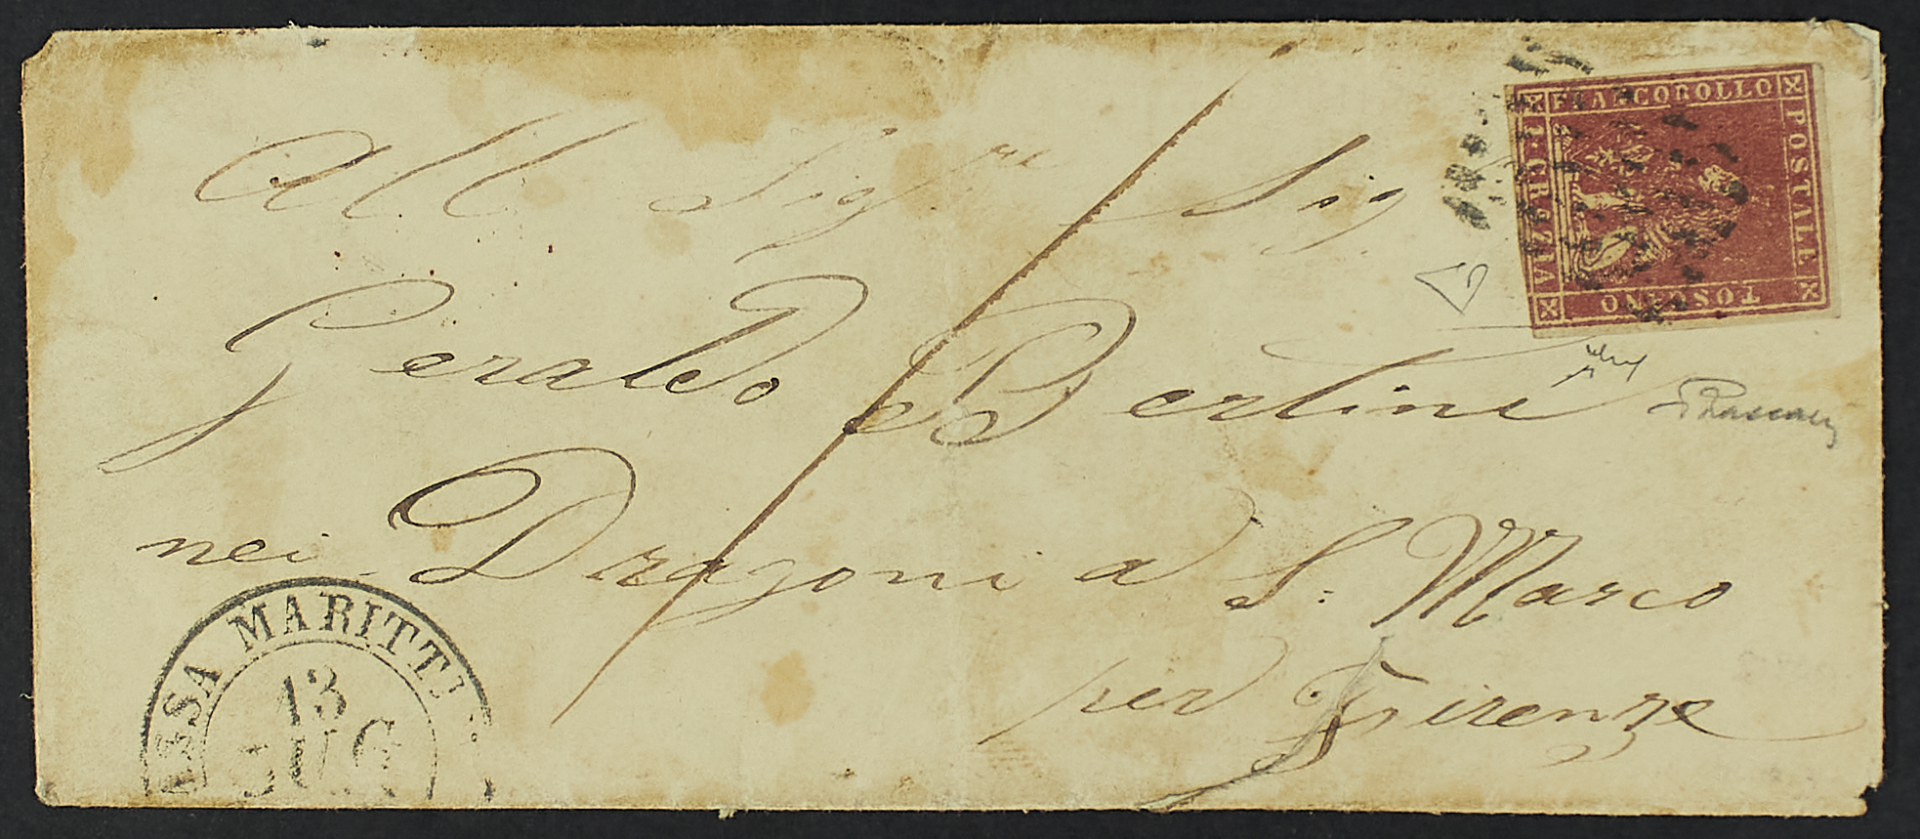 FRANCOBOLLO
POSTALE
TOSCANO
1 CRAZIA
All Sig.re Sig.
Geraldo Bertini
nei Dragoni a S: Marco
per Firenze
MASSA MARITTI
13
LUG